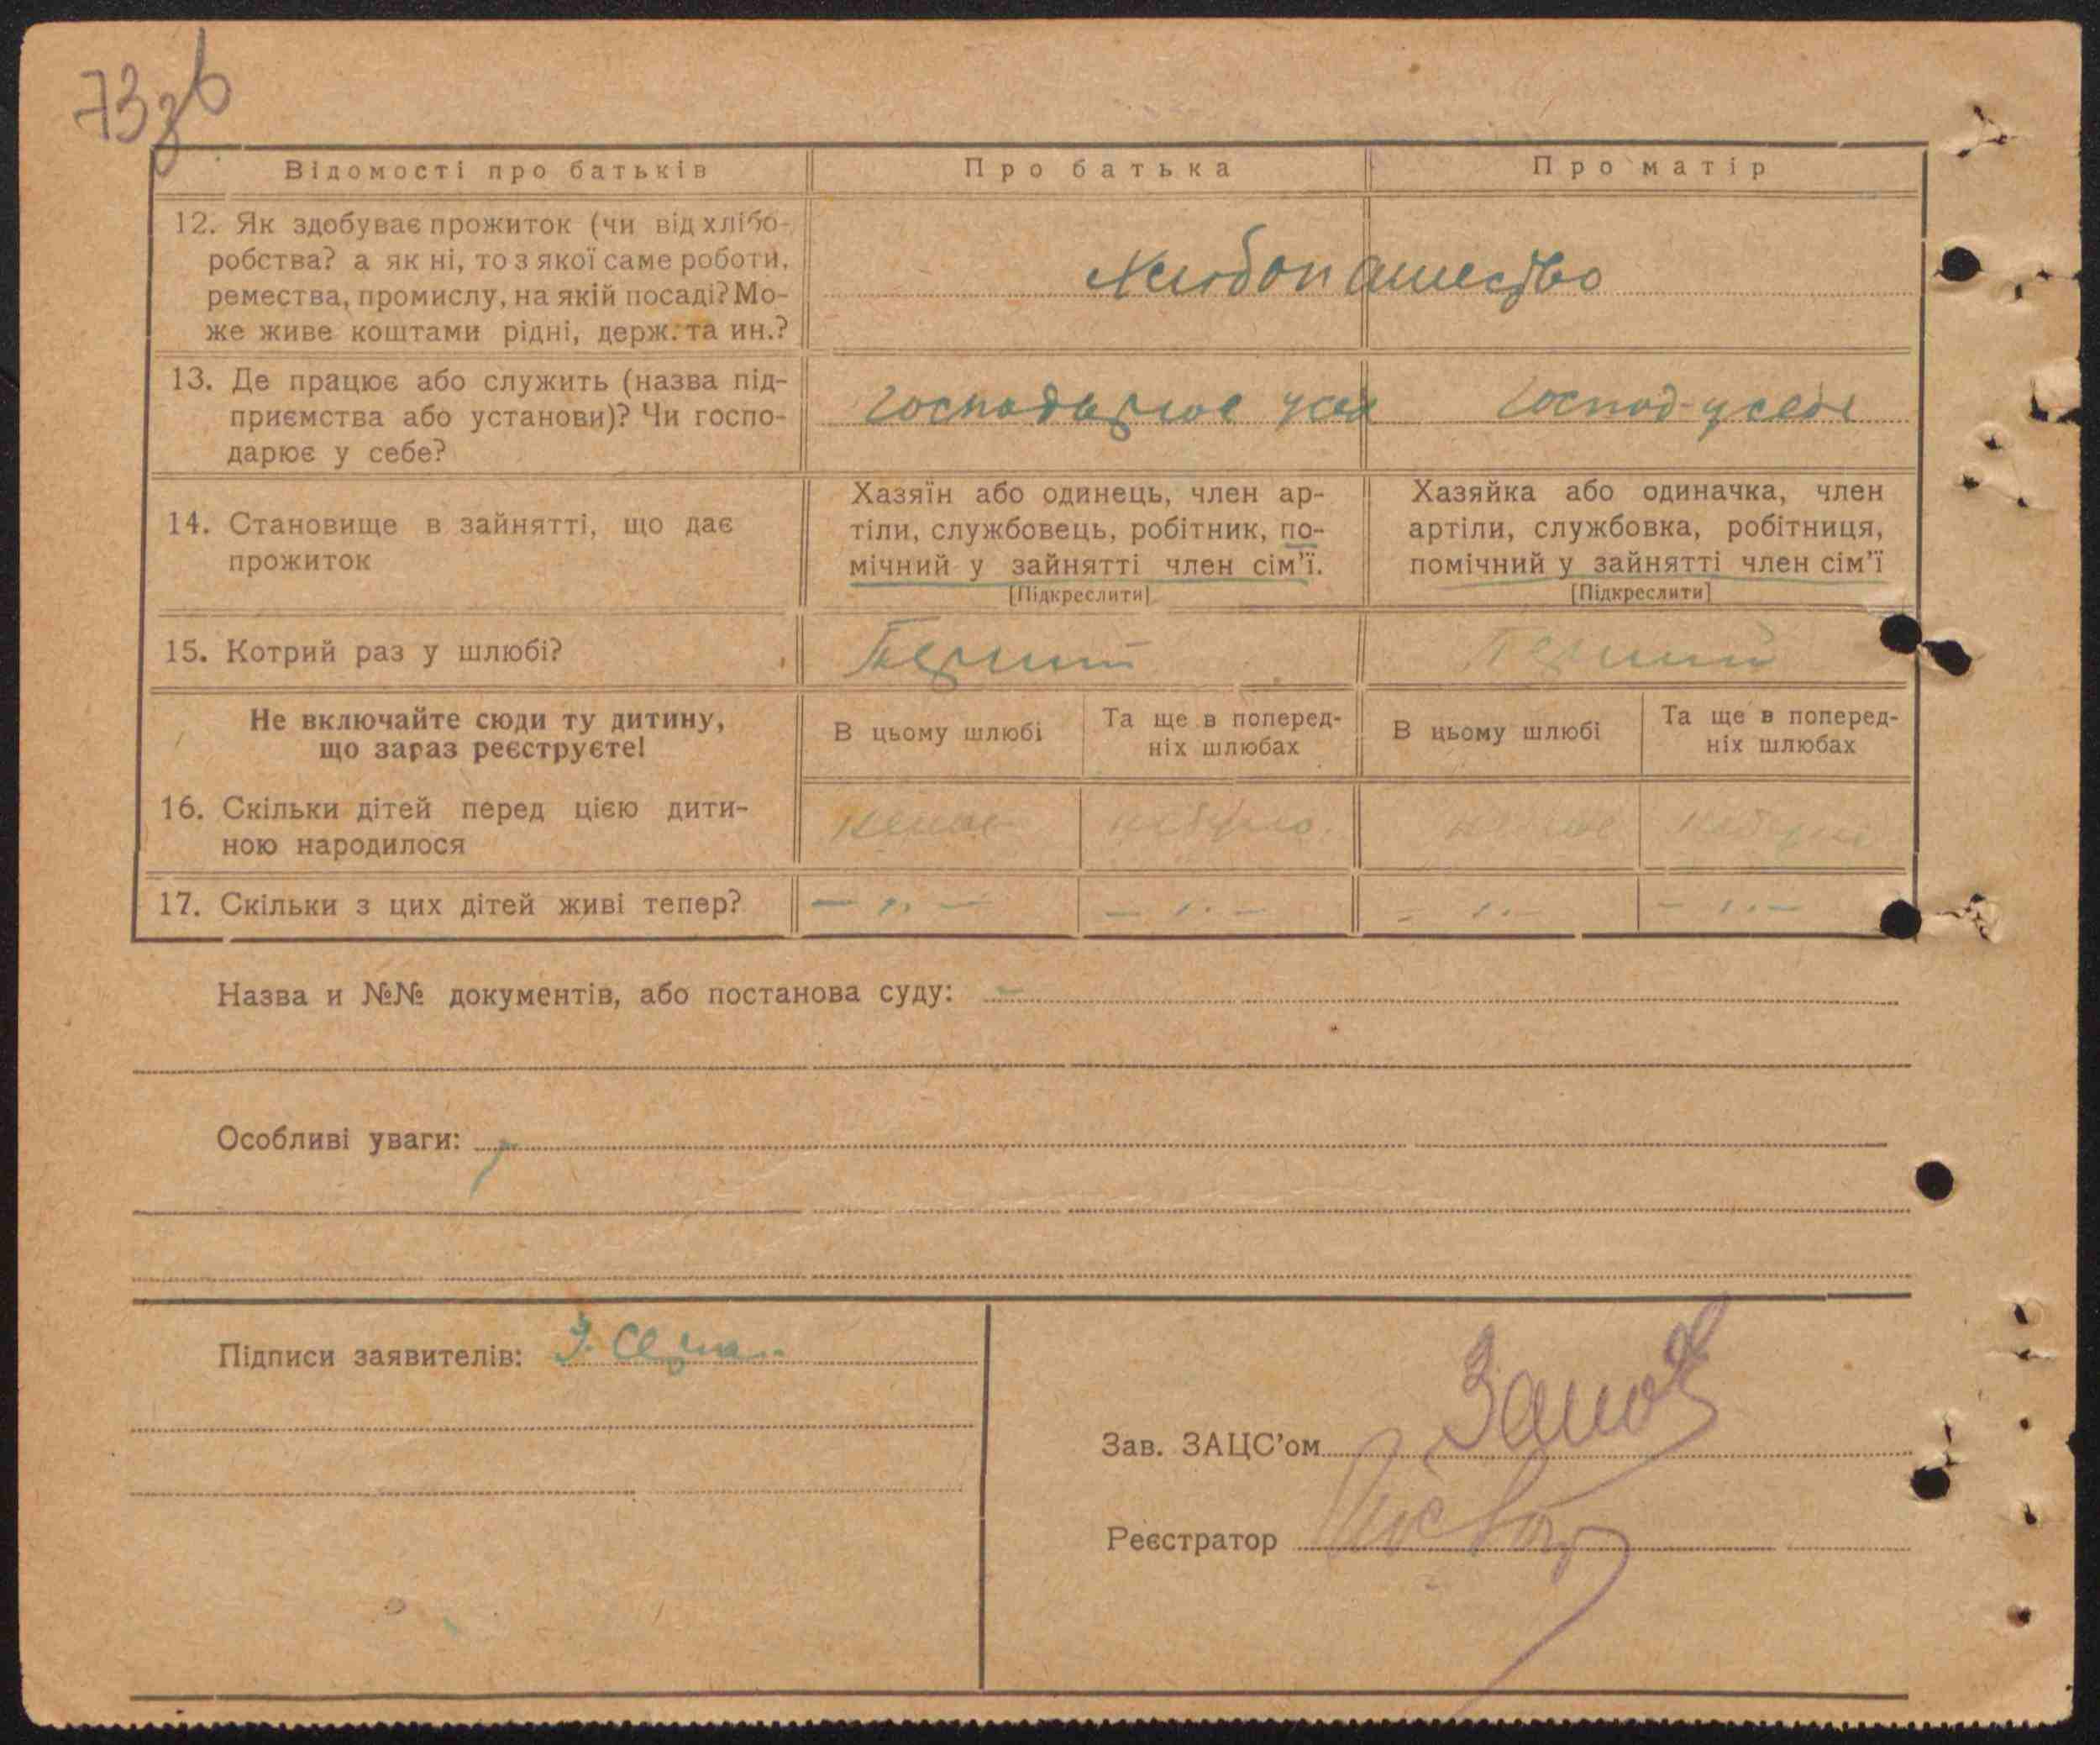 73зв
Відомості про батьків
Про батька
Про матір
12. Як здобуває прожиток (чи від хлібо-
робства? а як ні, то з якої саме роботи,
ремества, промислу, на якій посаді? Мо-
же живе коштами рідні, держ. та ин.?
Хлібопашество
13. Де працює або служить (назва під-
приємства або установи)? Чи госпо-
дарює у себе?
господарює у себе
господ. у себе
14. Становище в зайнятті, що дає
прожиток
Хазяїн або одинець, член ар-
тіли, службовець, робітник, по-
мічний у зайнятті член сім'ї.
[Підкреслити]
Хазяйка або одиначка, член
артіли, службовка, робітниця,
помічний у зайнятті член сім'ї
[Підкреслити]
15. Котрий раз у шлюбі?
Перший
Перший
Не включайте сюди ту дитину,
що зараз реєструєте!
В цьому шлюбі
Та ще в поперед-
ніх шлюбах
В цьому шлюбі
Та ще в поперед-
ніх шлюбах
16. Скільки дітей перед цією дити-
ною народилося
немає
небуло.
немає
небуло
17. Скільки з цих дітей живі тепер?
— " —
— " —
— " —
— " —
Назва и №№ документів, або постанова суду: —
Особливі уваги:
Підписи заявителів:
Зав. ЗАЦС'ом
Реєстратор